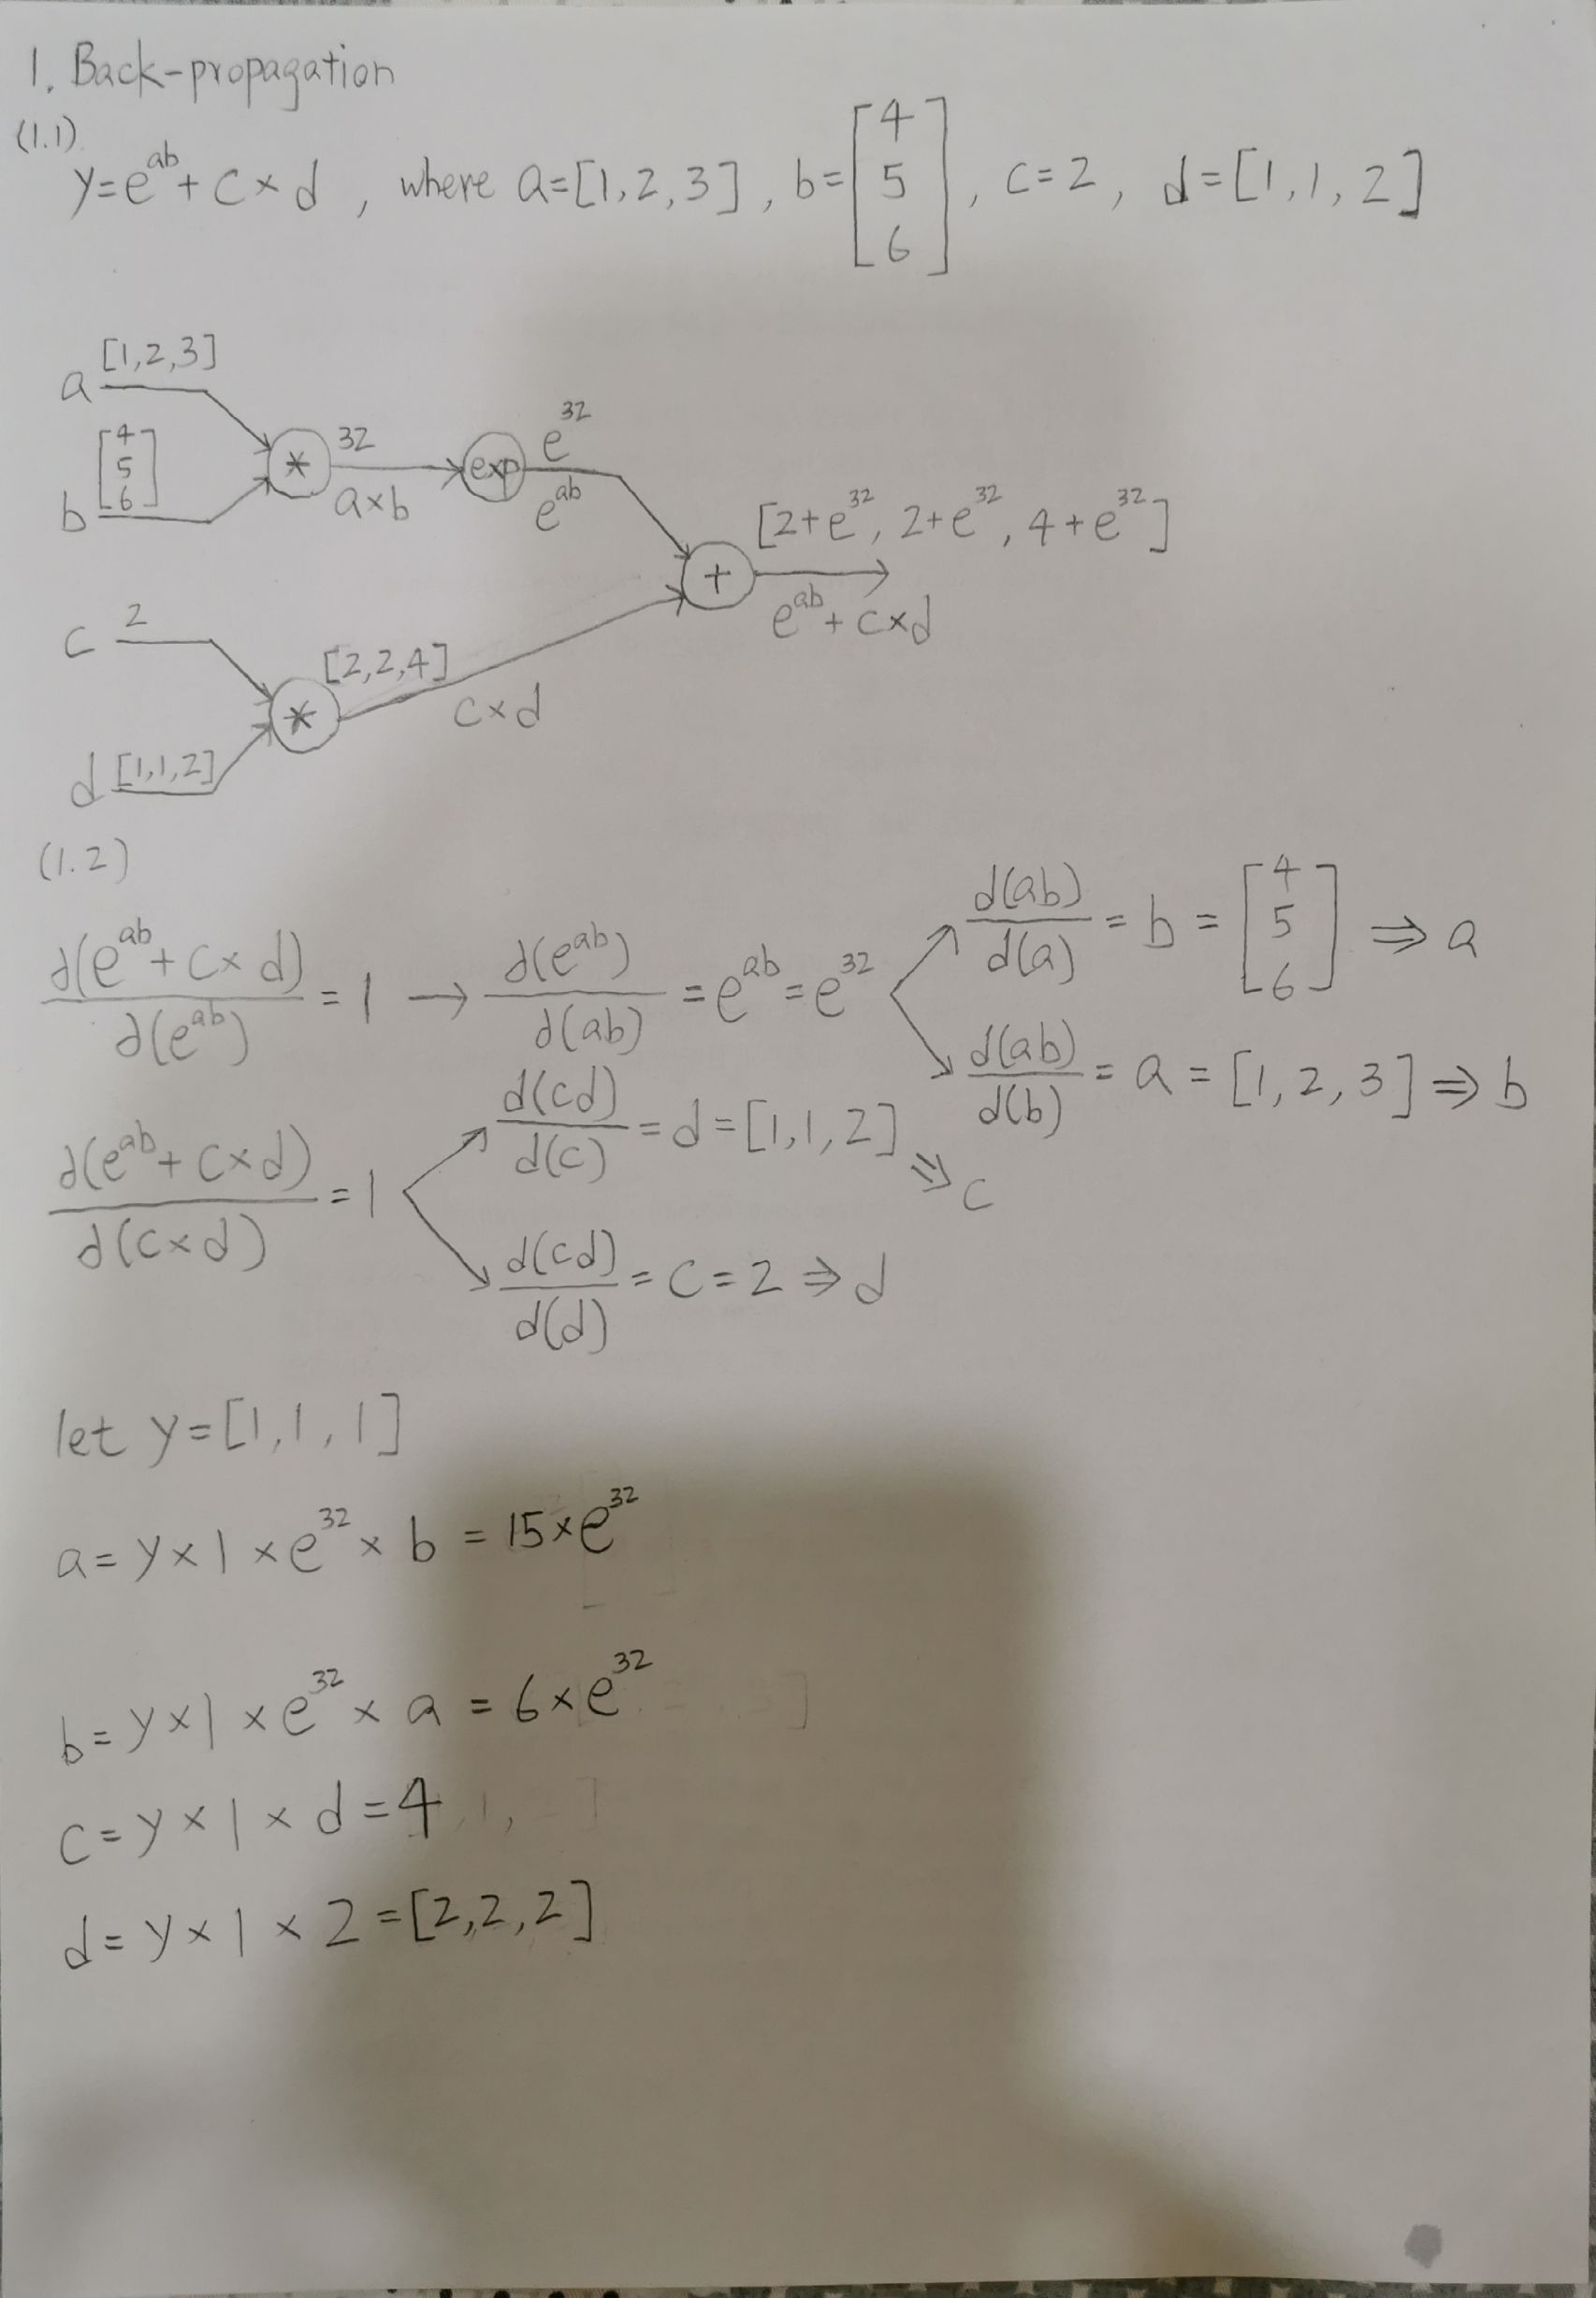 1. Back-propagation
(1.1)
y=e^{ab}+c×d, where a=[1,2,3], b=[4 5 6], c=2, d=[1,1,2]
a [1,2,3]
b [4 5 6]
* 32 a×b
exp e^{32} e^{ab}
+ [2+e^{32}, 2+e^{32}, 4+e^{32}]
e^{ab}+c×d
c 2
* [2,2,4] c×d
d [1,1,2]
(1.2)
d(e^{ab}+c×d)/d(e^{ab}) = 1 → d(e^{ab})/d(ab) = e^{ab} = e^{32}
d(ab)/d(a) = b = [4 5 6] ⇒ a
d(ab)/d(b) = a = [1,2,3] ⇒ b
d(e^{ab}+c×d)/d(c×d) = 1
d(cd)/d(c) = d = [1,1,2] ⇒ c
d(cd)/d(d) = c = 2 ⇒ d
let y=[1,1,1]
a=y×1×e^{32}×b = 15×e^{32}
b=y×1×e^{32}×a = 6×e^{32}
c=y×1×d=4
d=y×1×2=[2,2,2]